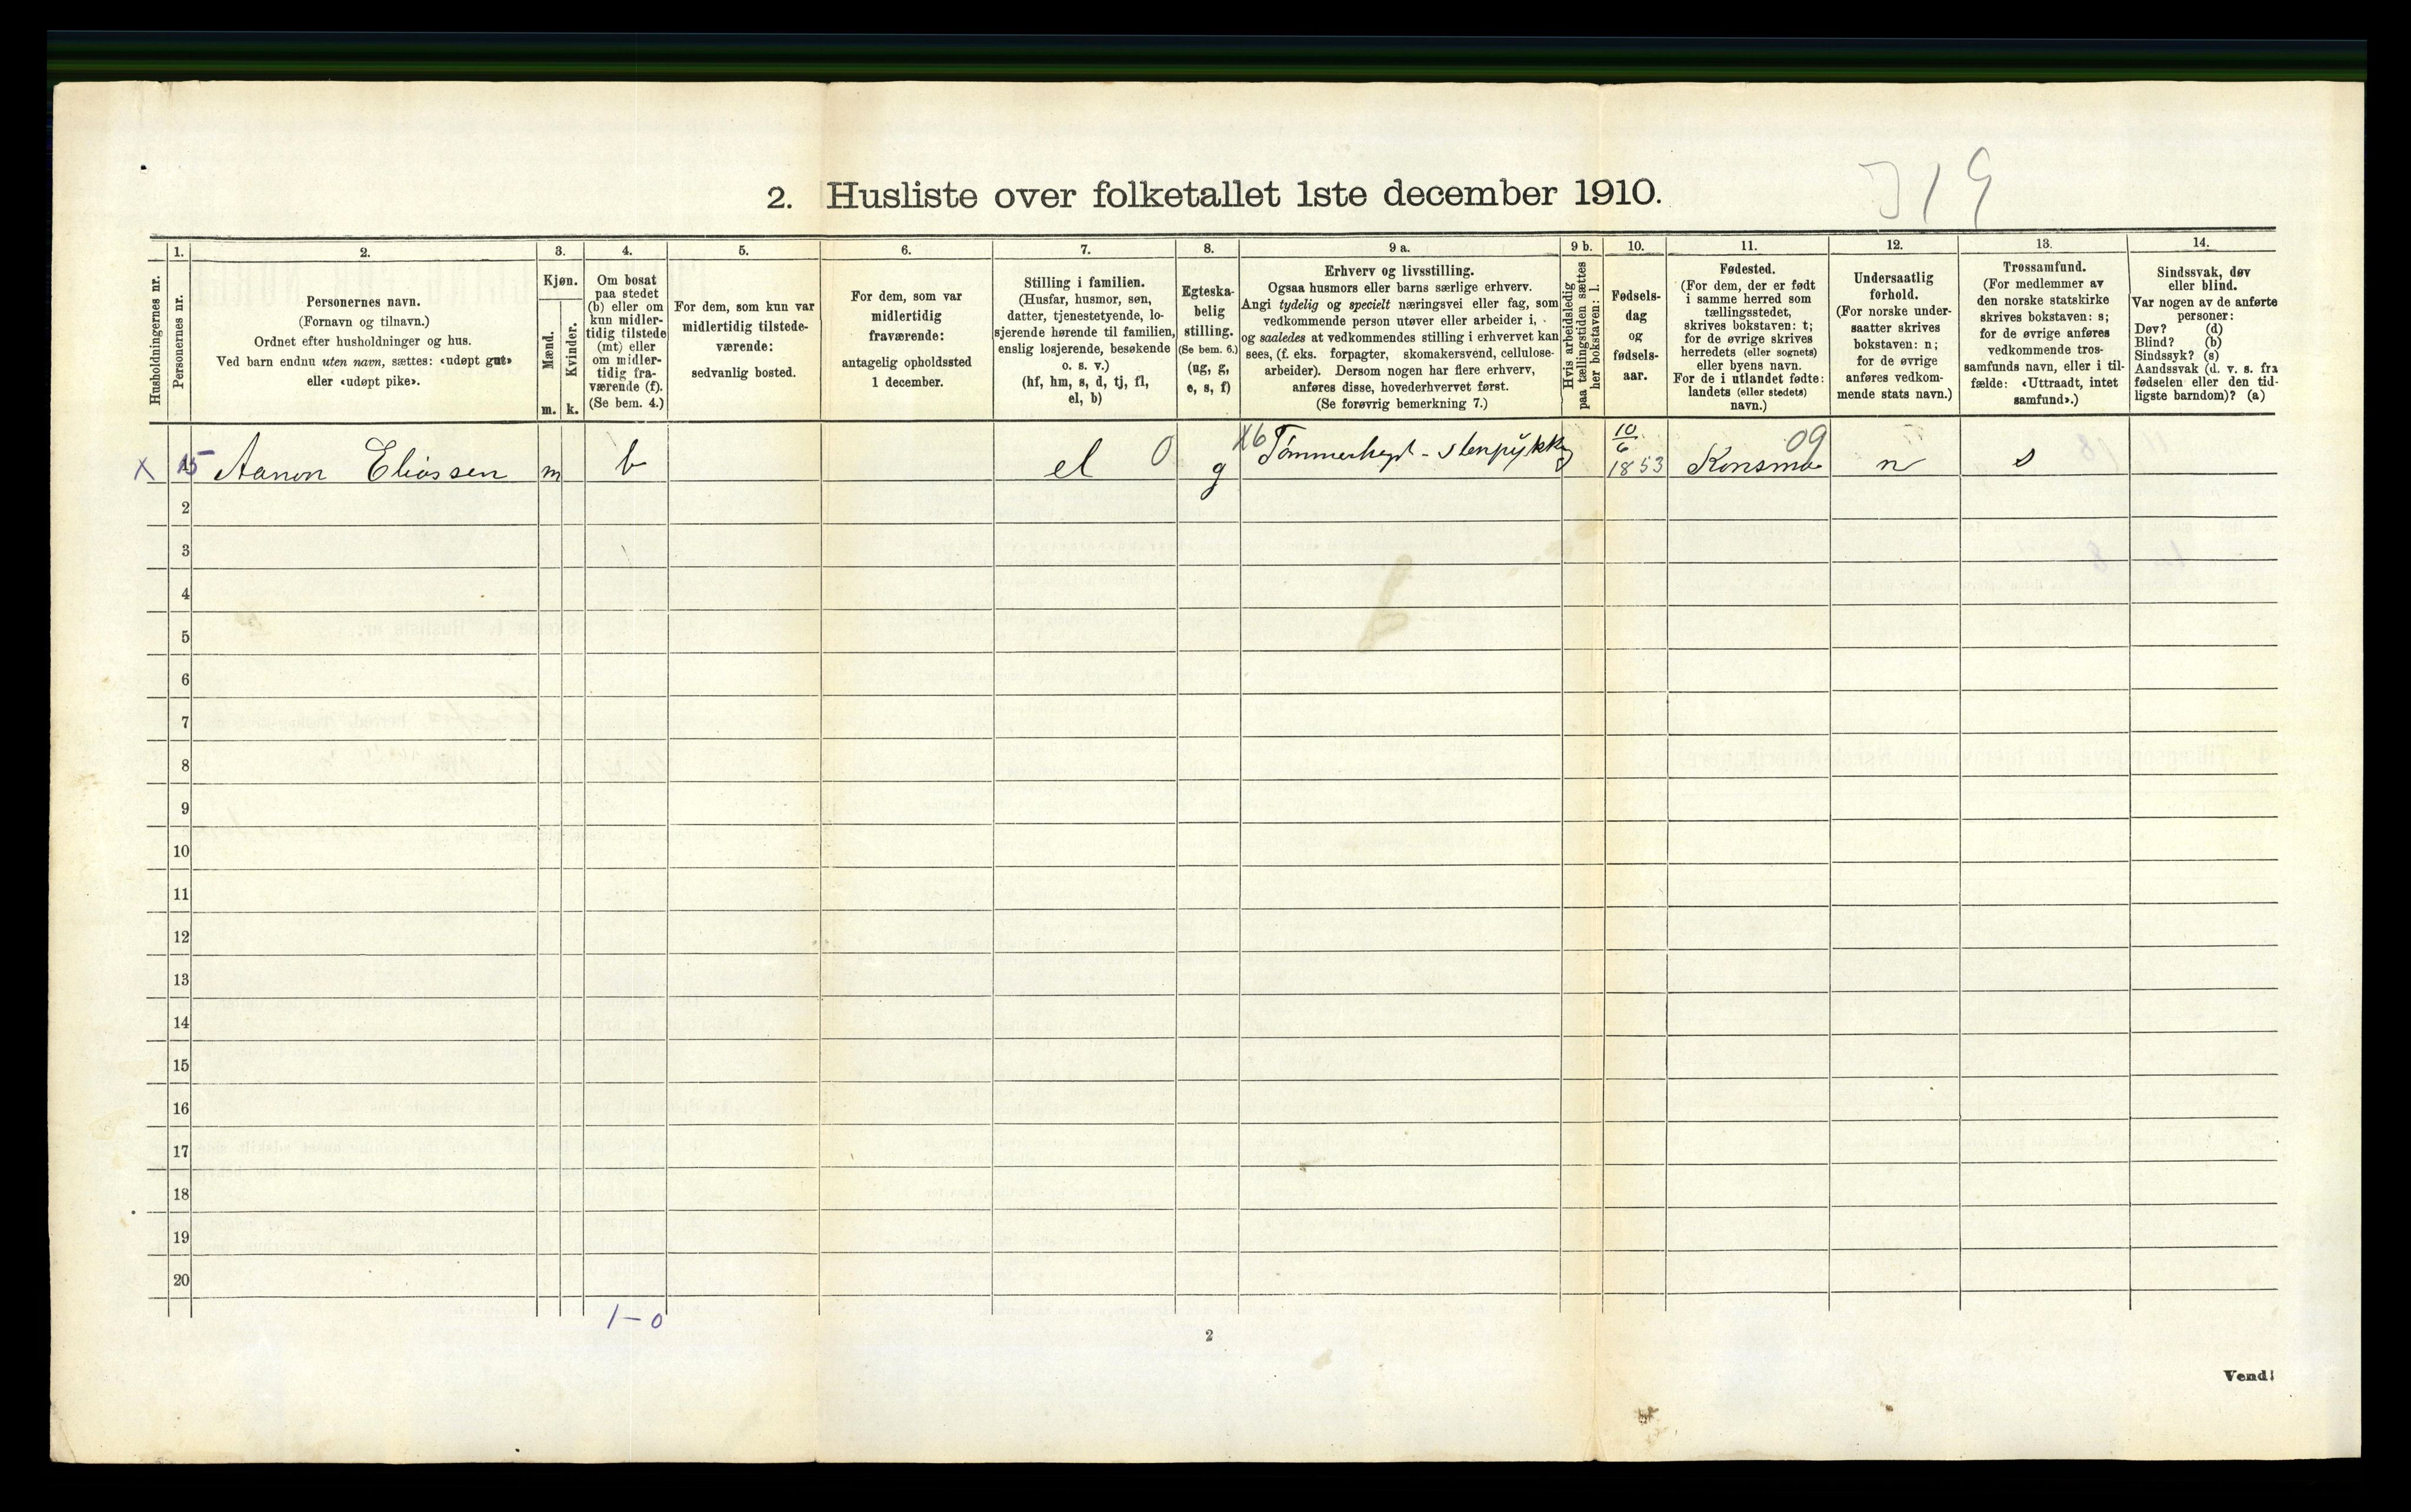 319
2. Husliste over folketallet 1ste december 1910.
Husholdningernes nr.
1.
Personernes nr.
2.
Personernes navn.
(Fornavn og tilnavn.)
Ordnet efter husholdninger og hus.
Ved barn endnu uten navn, sættes: «udøpt gut»
eller «udøpt pike».
3.
Kjøn.
Mænd.
Kvinder.
m. k.
4.
Om bosat
paa stedet
(b) eller om
kun midler-
tidig tilstede
(mt) eller
om midler-
tidig fra-
værende (f).
(Se bem. 4.)
5.
For dem, som kun var
midlertidig tilstede-
værende:
sedvanlig bosted.
6.
For dem, som var
midlertidig
fraværende:
antagelig opholdssted
1 december.
7.
Stilling i familien.
(Husfar, husmor, søn,
datter, tjenestetyende, lo-
sjerende hørende til familien,
enslig losjerende, besøkende
o. s. v.)
(hf, hm, s, d, tj, fl,
el, b)
8.
Egteska-
belig
stilling.
(Se bem. 6.)
(ug, g,
e, s, f)
9 a.
Erhverv og livsstilling.
Ogsaa husmors eller barns særlige erhverv.
Angi tydelig og specielt næringsvei eller fag, som
vedkommende person utøver eller arbeider i,
og saaledes at vedkommendes stilling i erhvervet kan
sees, (f. eks. forpagter, skomakersvend, cellulose-
arbeider). Dersom nogen har flere erhverv,
anføres disse, hovederhvervet først.
(Se forøvrig bemerkning 7.)
9 b.
Hvis arbeidsledig
paa tællingstiden sættes
her bokstaven: l.
10.
Fødsels-
dag
og
fødsels-
aar.
11.
Fødested.
(For dem, der er født
i samme herred som
tællingsstedet,
skrives bokstaven: t;
for de øvrige skrives
herredets (eller sognets)
eller byens navn.
For de i utlandet fødte:
landets (eller stedets)
navn.)
12.
Undersaatlig
forhold.
(For norske under-
saatter skrives
bokstaven: n;
for de øvrige
anføres vedkom-
mende stats navn.)
13.
Trossamfund.
(For medlemmer av
den norske statskirke
skrives bokstaven: s;
for de øvrige anføres
vedkommende tros-
samfunds navn, eller i til-
fælde: «Uttraadt, intet
samfund».)
14.
Sindssvak, døv
eller blind.
Var nogen av de anførte
personer:
Døv? (d)
Blind? (b)
Sindssyk? (s)
Aandssvak (d. v. s. fra
fødselen eller den tid-
ligste barndom)? (a)
X 15 Aanon Eliassen m b el 0 g X6 10/6 1853 Konsmo 09 n s
2
3
4
5
6
7
8
9
10
11
12
13
14
15
16
17
18
19
20
1-0
2
Vend!